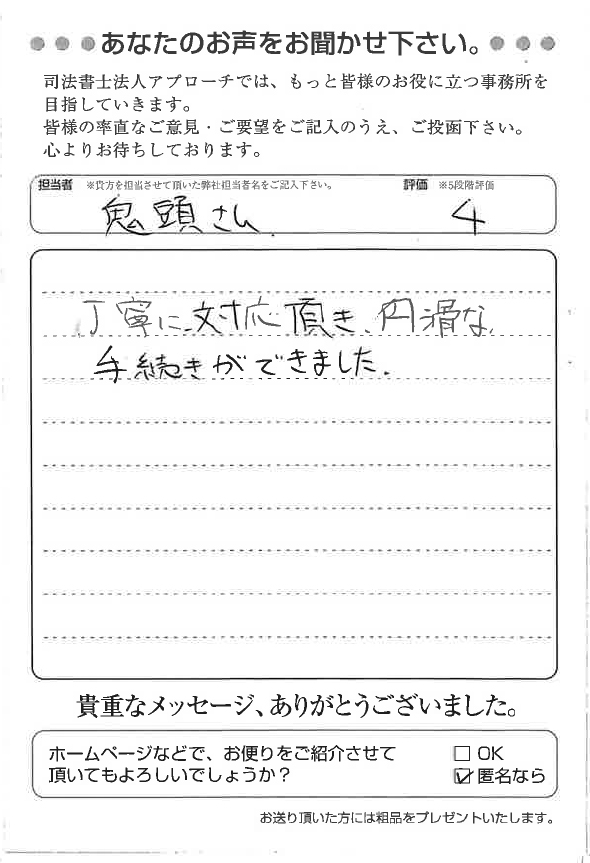 ●●●あなたのお声をお聞かせ下さい。●●●
司法書士法人アプローチでは、もっと皆様のお役に立つ事務所を
目指していきます。
皆様の率直なご意見・ご要望をご記入のうえ、ご投函下さい。
心よりお待ちしております。
担当者 ※貴方を担当させて頂いた弊社担当者名をご記入下さい。 評価 ※5段階評価
鬼頭さん 4
丁寧に対応頂き、円滑な
手続きができました。
貴重なメッセージ、ありがとうございました。
ホームページなどで、お便りをご紹介させて □ OK
頂いてもよろしいでしょうか？ ☑ 匿名なら
お送り頂いた方には粗品をプレゼントいたします。